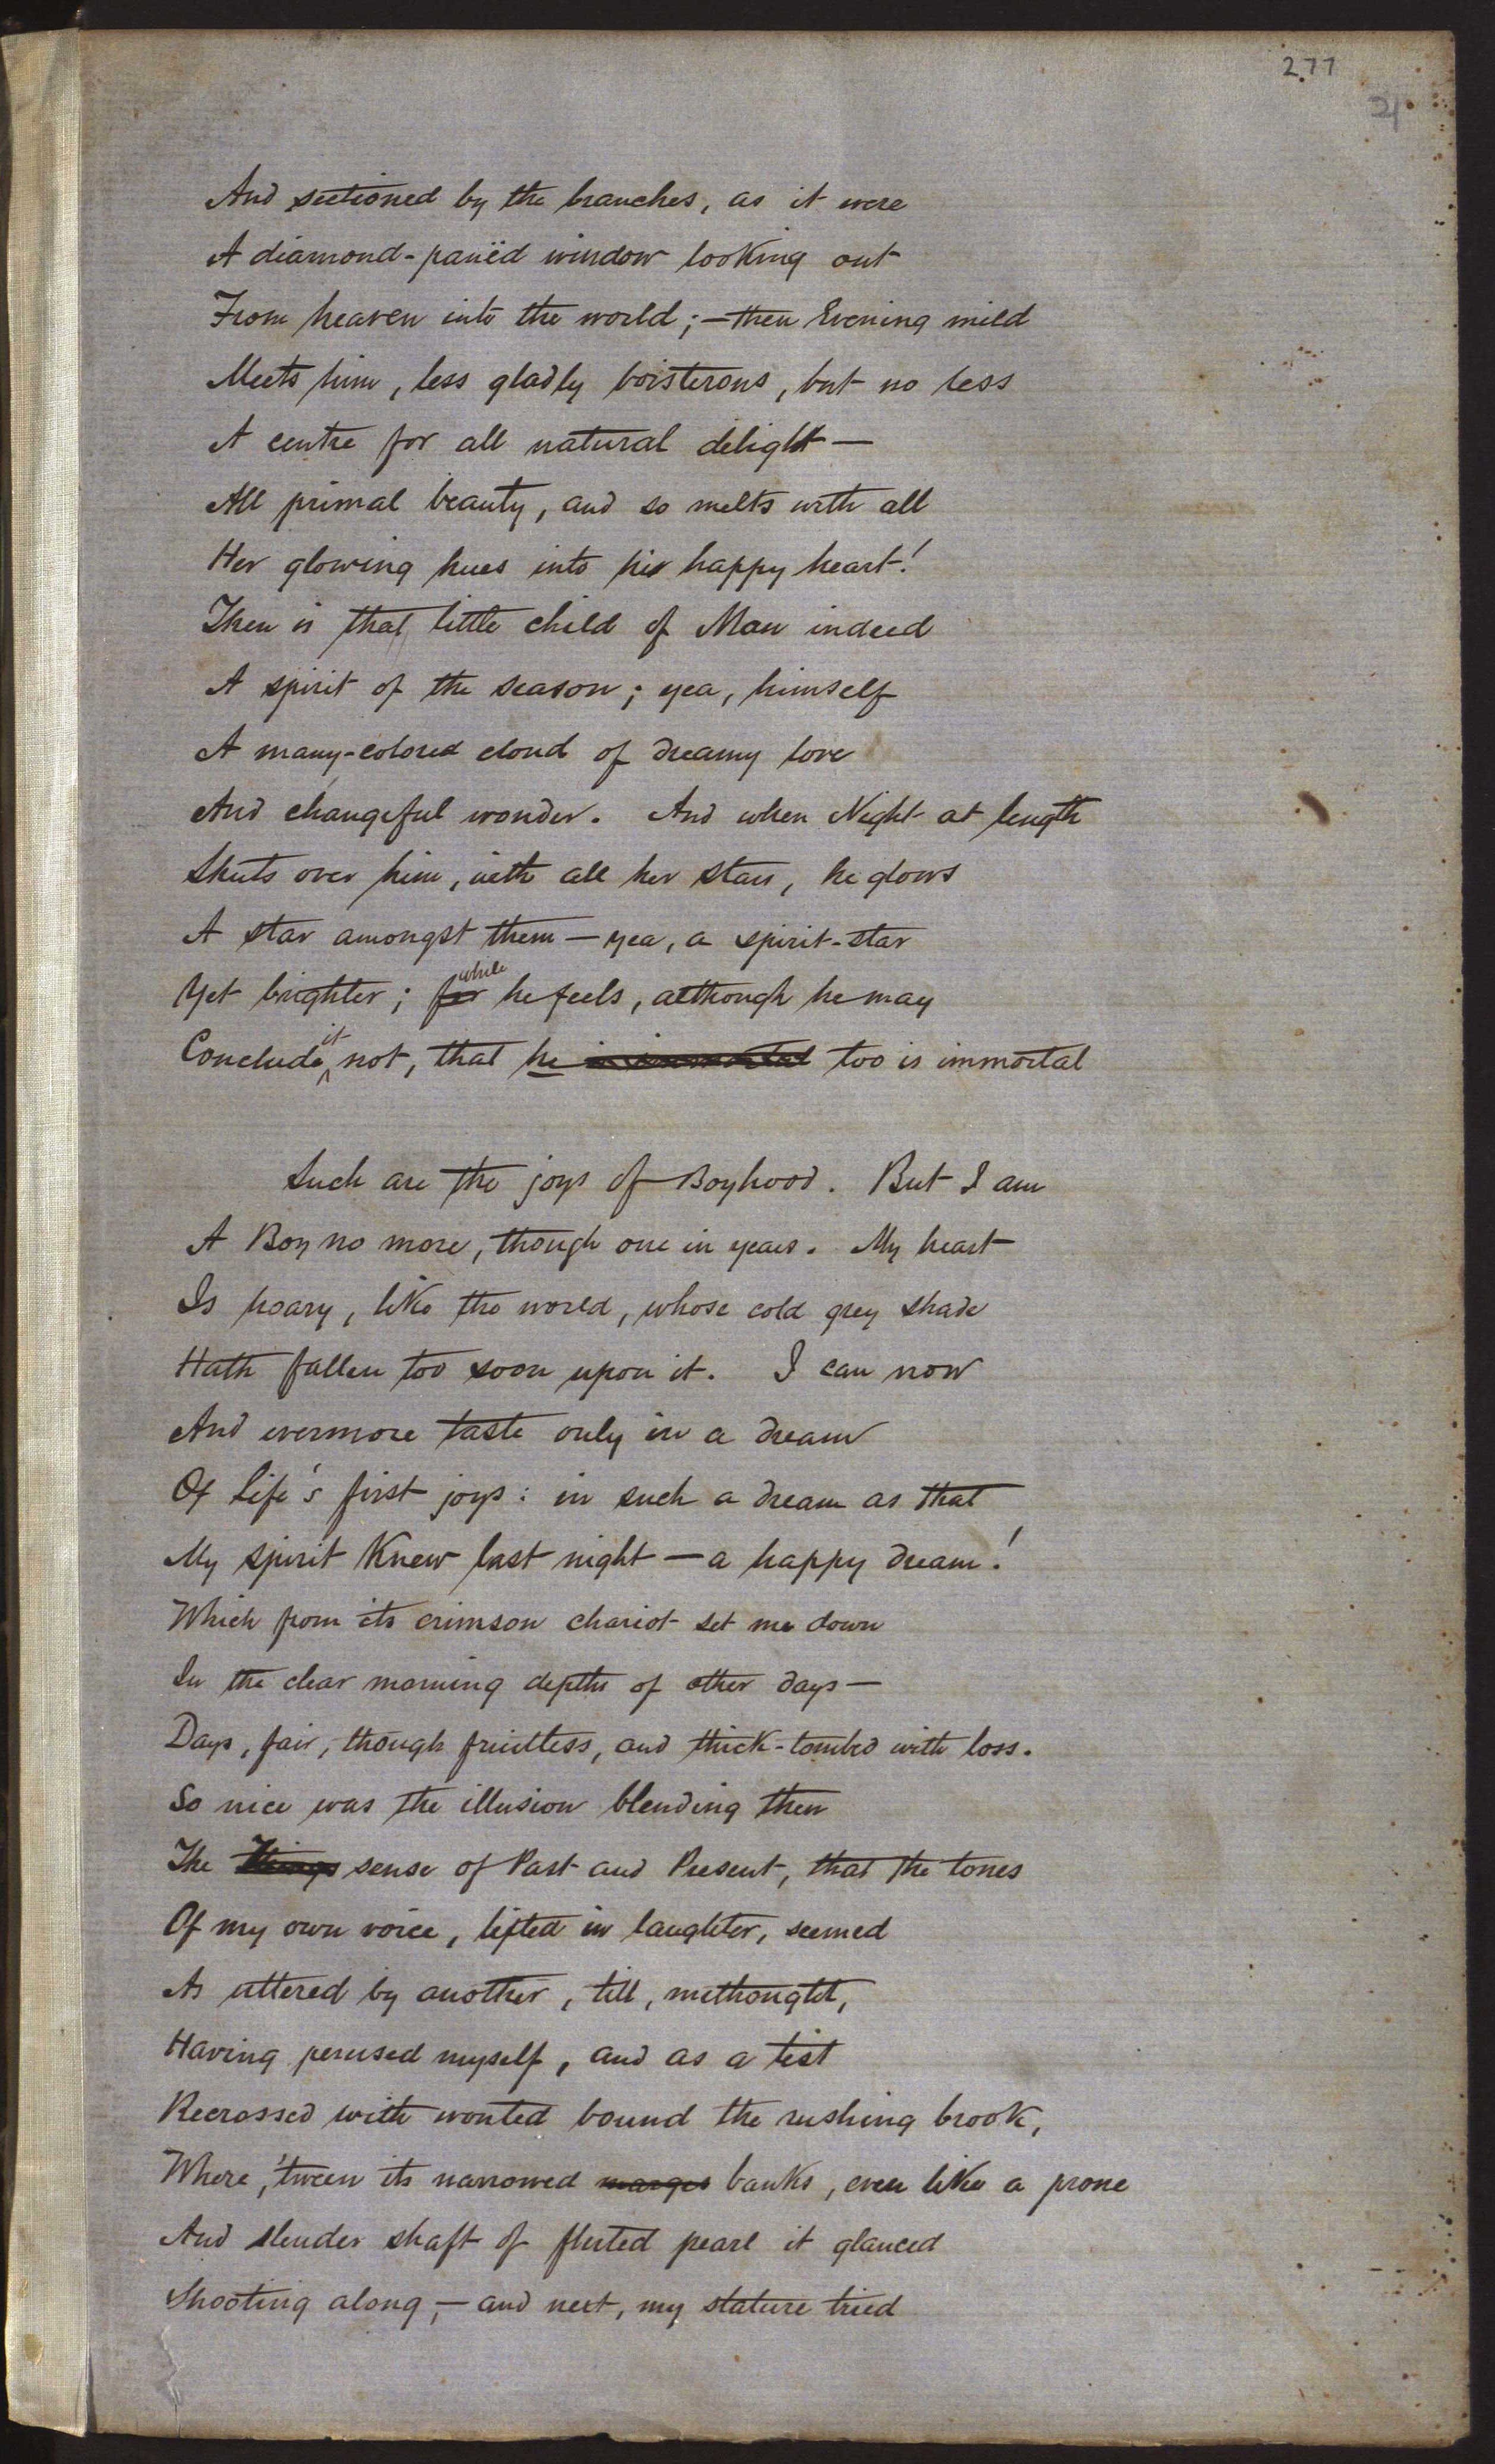 277
21
And sectioned by the branches, as it were
A diamond-panëd window looking out
From heaven into the world; — then Evening mild
Meets him, less gladly boisterous, but no less
A centre for all natural delight —
All primal beauty, and so melts with all
Her glowing hues into his happy heart!
Then is that little child of Man indeed
A spirit of the season; yea, himself
A many-colored cloud of dreamy love
And changeful wonder. And when Night at length
Shuts over him, with all her stars, he glows
A star amongst them — yea, a spirit-star
while
Yet brighter; for he feels, although he may
it
Conclude not, that he is immortal too is immortal
Such are the joys of Boyhood. But I am
A Boy no more, though one in years. My heart
Is hoary, like the world, whose cold grey shade
Hath fallen too soon upon it. I can now
And evermore taste only in a dream
Of Life's first joys: in such a dream as that
My spirit knew last night — a happy dream!
Which from its crimson chariot set me down
In the clear morning depths of other days —
Days, fair, though fruitless, and thick-tombed with loss.
So nice was the illusion blending then
The Things sense of Past and Present, that the tones
Of my own voice, lifted in laughter, seemed
As uttered by another, till, methought,
Having perused myself, and as a test
Recrossed with wonted bound the rushing brook,
Where, 'tween its narrowed marges banks, even like a prone
And slender shaft of fluted pearl it glanced
Shooting along, — and next, my stature tried